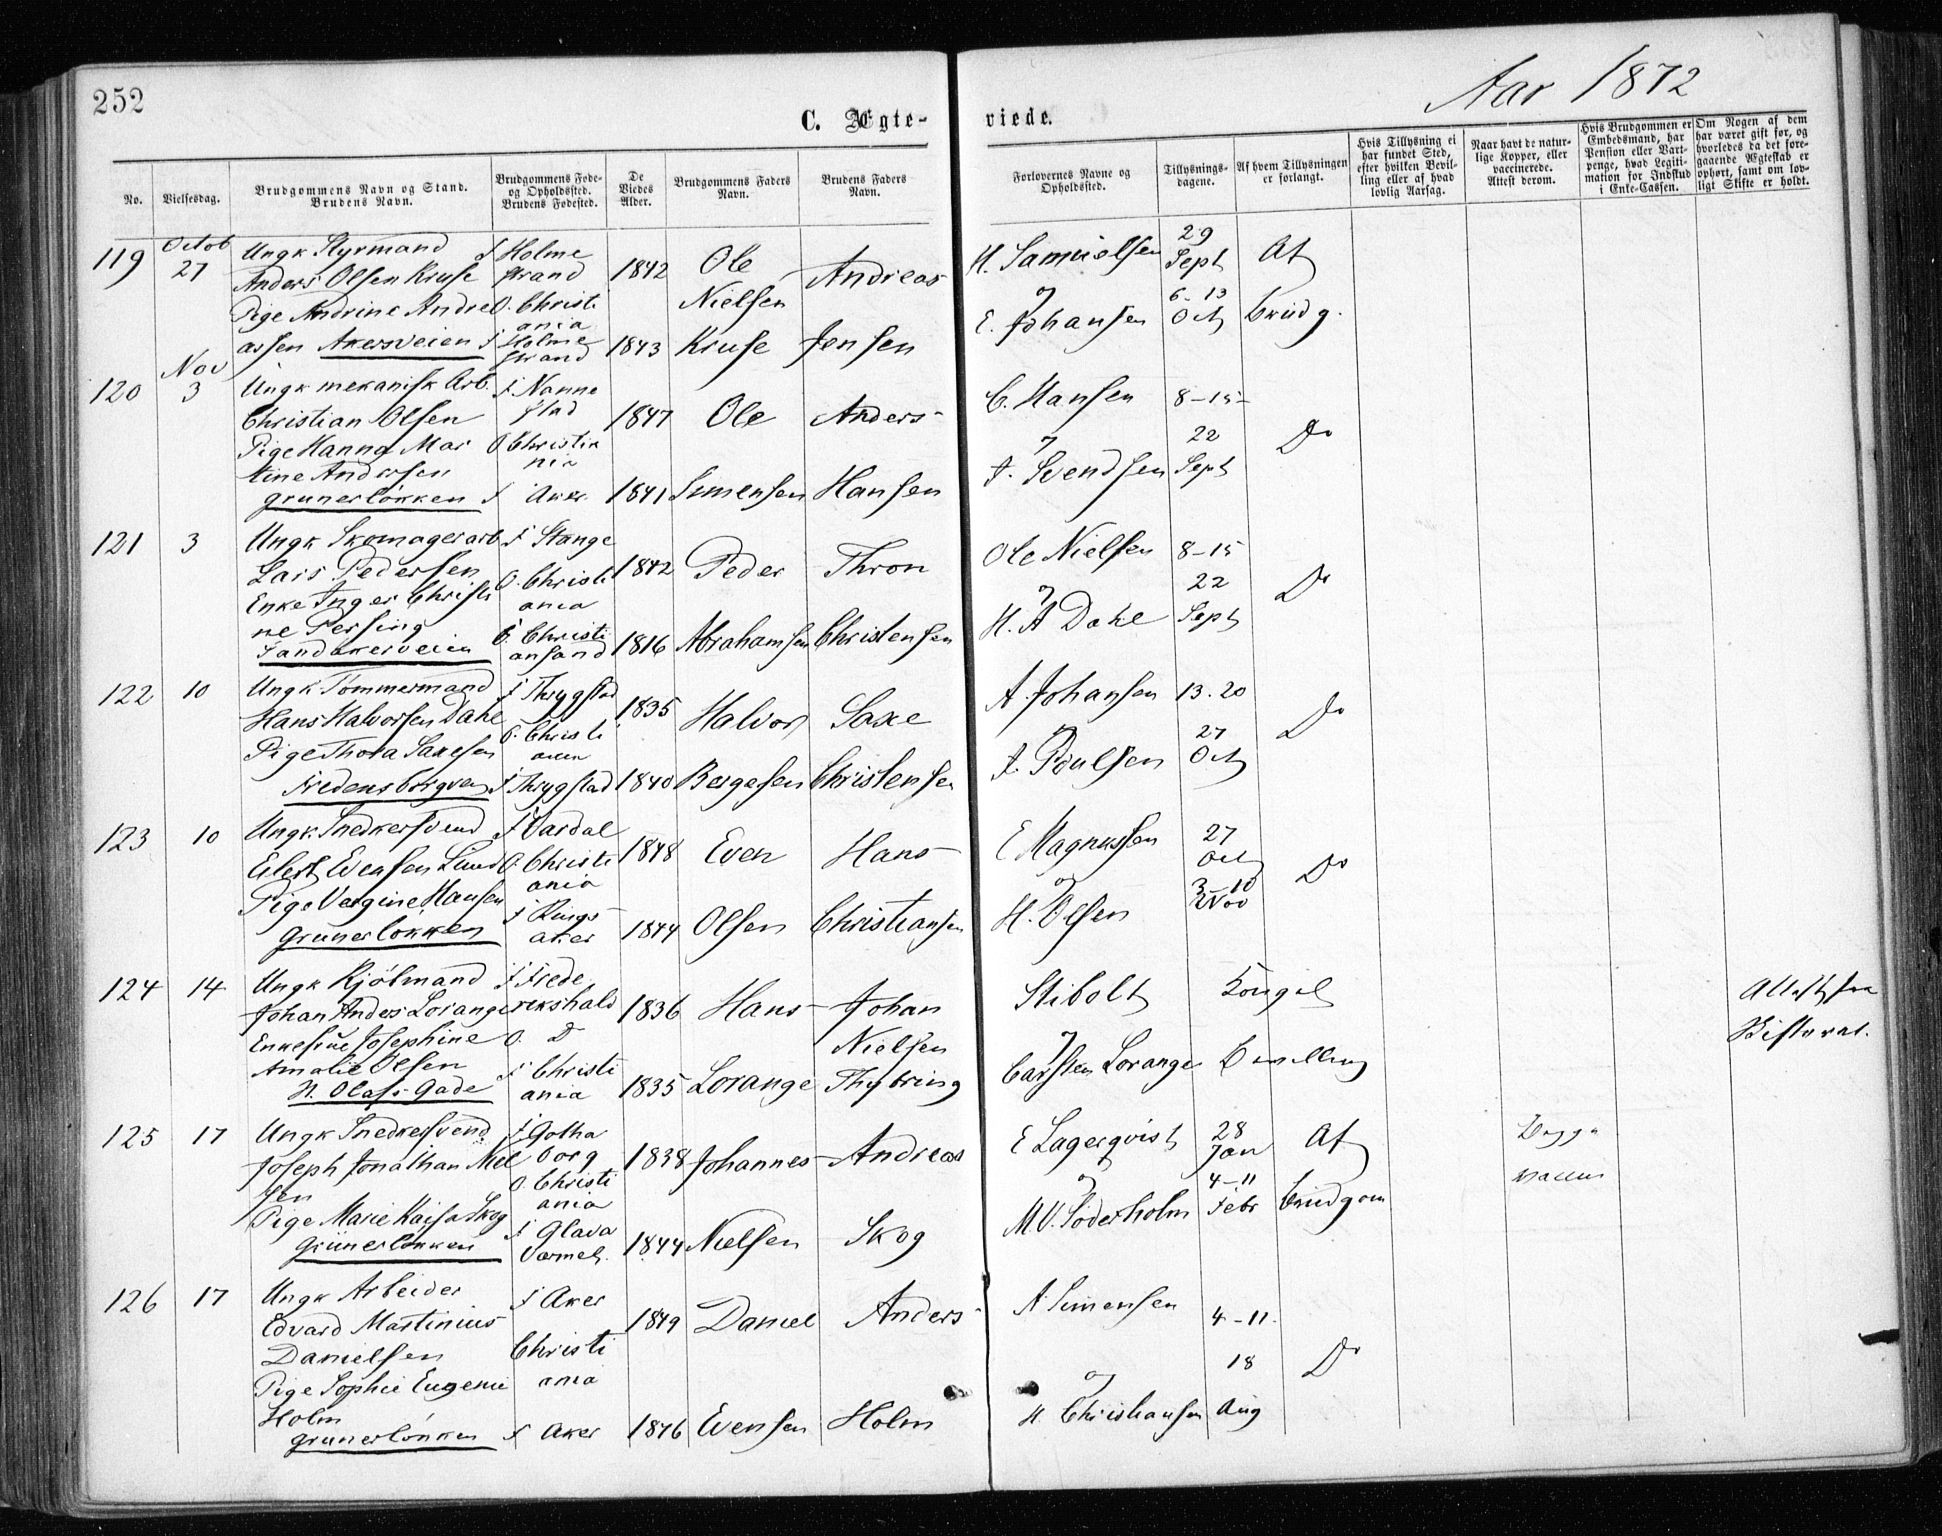 252
C. Ægte-
viede.
Aar 1872
No.
Vielsesdag.
Brudgommens Navn og Stand.
Brudens Navn.
Brudgommens Fode-
og Opholdssted.
Brudens Fødested.
De
Viedes
Alder.
Brudgommens Faders
Navn.
Brudens Faders
Navn.
Forlovernes Navne og
Opholdssted.
Tillysnings-
dagene.
Af hvem Tillysningen
er forlangt.
Hvis Tillysning ei
har fundet Sted,
efter hvilken Bevil-
ling eller af hvad
lovlig Aarsag.
Naar havt de natur-
lige Kopper, eller
vaccinerede.
Attest derom.
Hvis Brudgommen er
Embedsmand, har
Pension eller Vart-
penge, hvad Legiti-
mation for Indskud
i Enke-Cassen.
Om Nogen af dem
har været gift før, og
hvorledes da det fore-
gaaende Ægteskab er
ophørt, samt om lov-
ligt Skifte er holdt.
119
Octob
27
Ungk Styrmand
Anders Olsen Kruse
Pige Andrine Andre
assen Akersveien
f Holme
strand
O. Christi
ania
f Holme
strand
1842
1843
Ole
Nielsen
Kruse
Andreas
Jensen
H. Samuelsen
og
E. Johansen
29
Sept
6-13
Oct
Af
Brudg.
120
Nov
3
Ungk mekanisk Arb.
Christian Olsen
Pige Hanna Mar
tine Andersen
Grunerløkken
f Nanne
stad
O Christia
nia
f Aker
1847
1841
Ole
Simensen
Anders
Hansen
C. Hansen
og
A. Svendsen
8-15-
22
Sept
Do
121
3
Ungk Skomagerarb
Lars Pedersen
Enke Inger Christi
ne Persing
Sandakerveien
f Stange
O. Christi
ania
f. Christi
ansand
1842
1816
Peder
Abrahamsen
Thron
Christensen
Ole Nielsen
og
H. A Dahl
8-15
22
Sept
Do
122
10
Ungk Tømmermand
Hans Halvorsen Dahl
Pige Thora Saxesen
Fredensborgvei
f Thrygstad
O. Christi
ania
f Thrygstad
1835
1840
Halvor
Bergesen
Saxe
Christensen
A. Johansen
og
A. Poulsen
13. 20
27
Oct
Do
123
10
Ungk. Snedkersvend
Eilert Evensen Lund
Pige Vergine Hansen
Grunerløkken
f Vardal
O. Christi
ania
f Rings
aker
1848
1844
Even
Olsen
Hans
Christiansen
E Magnussen
og
H. Olsen
27
Oct
3-10
Nov
Do
124
14
Ungk Kjølmand
Johan Anders Lorange
Enkefrue Josephine
Amalie Olsen
H. Olafs Gade
f Frede
rikshald
O. D
f Christi
ania
1836
1835
Hans
Lorange
Johan
Nielsen
Thybring
Stibolt
og
Carsten Lorange
Kongel
Bevilling
Attest fra
Skifteret.
125
17
Ungk Snedkersvend
Joseph Jonathan Niel
sen
Pige Marie Kaisa Skog
Grunerløkken
f. Gotha
borg
O. Christi
ania
f Glava
Vermel.
1838
1844
Johannes
Nielsen
Andreas
Skog
E Lagerqvist
og
M. V. Söderholm
28
Jan
4-11
Febr
Af
Brudgom
Begge
vaccin
126
17
Ungk Arbeider
Edvard Martinius
Danielsen
Pige Sophie Eugenie
Holm
Grunerløkken
f Aker
Christi
ania
f Aker
1849
1846
Daniel
Evensen
Anders
Holm
A Simensen
og
H. Christiansen
4-11.
18
Aug
Do